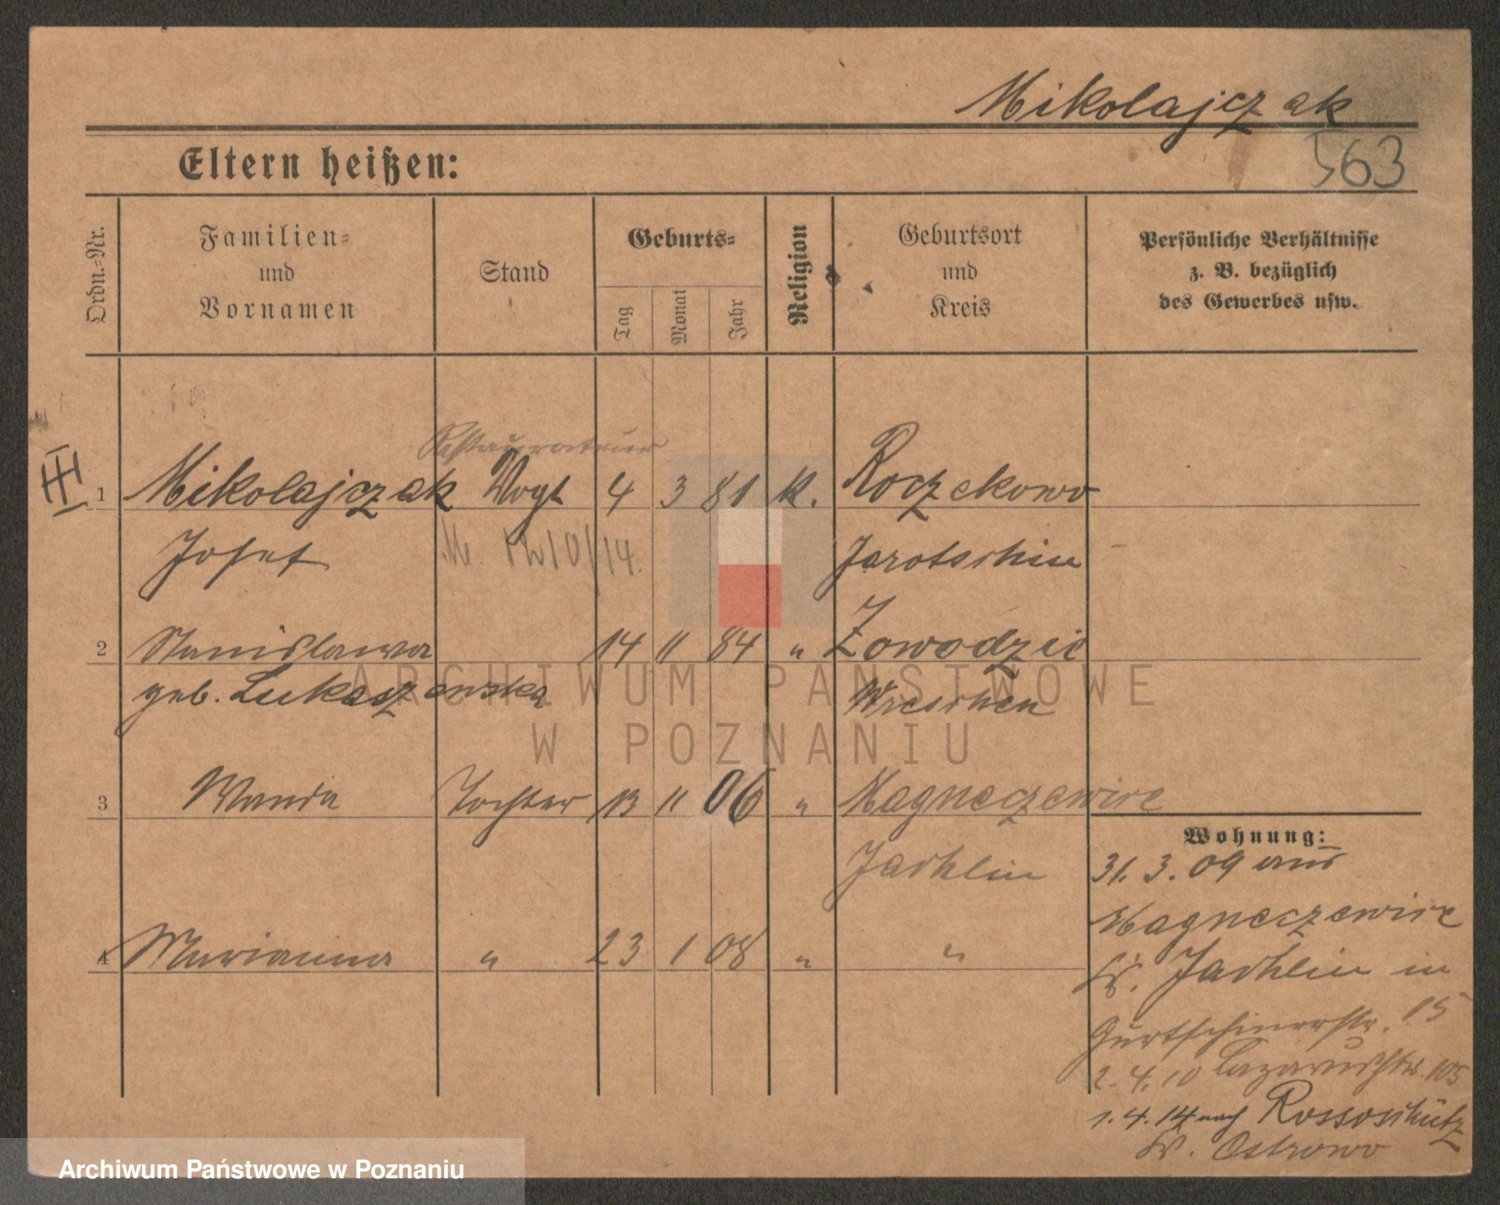 Mikolajczak
563
Eltern heißen:
Ordn.-Nr.
Familien-
und
Vornamen
Stand
Geburts-
Tag
Monat
Jahr
Religion
Geburtsort
und
Kreis
Persönliche Verhältnisse
z. B. bezüglich
des Gewerbes usw.
Restaurateur
III
1 Mikolajczak Vogt 4 3 81 k. Roczekowo
Josef Jarotschin
2 Stanislawa 14 11 84 " Zowodzie
geb. Lukaszewska Wreschen
3 Wanda Tochter 13 11 06 " Magneczewice
Jachlin
Wohnung:
31. 3. 09 aus
Magneczewice
Kr. Jachlin in
4 Marianna " 23 1 08 " "
Gurtschinerstr. 15
2. 4. 10 Lazarusstr. 105
1. 4. 14 nach Rossoschütz
Kr. Ostrowo
ARCHIWUM PAŃSTWOWE
W POZNANIU
Archiwum Państwowe w Poznaniu